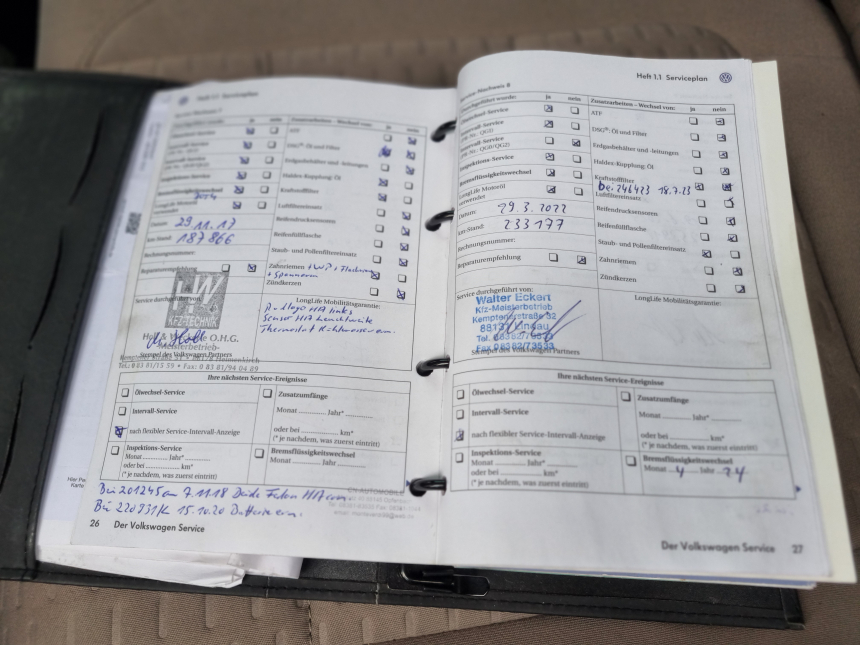 Heft 1.1 Serviceplan
Service-Nachweis 7
ja nein
Zusatzarbeiten – Wechsel von: ja nein
ATF
DSG®: Öl und Filter
Erdgasbehälter und -leitungen
Haldex-Kupplung: Öl
Kraftstofffilter
Luftfiltereinsatz
Reifendrucksensoren
Reifenfüllflasche
Staub- und Pollenfiltereinsatz
Zahnriemen + WP +
+ Spannern
Zündkerzen
Intervall-Service
Inspektions-Service
Bremsflüssigkeitswechsel
LongLife Motoröl
verwendet
Datum: 29.11.17
km-Stand: 187866
Rechnungsnummer:
Reparaturempfehlung
Service durchgeführt von:
LW
KFZ-TECHNIK
O.H.G.
-Meisterbetrieb-
Stempel des Volkswagen Partners
Tel.: 0 83 81/15 59 • Fax: 0 83 81/94 04 89
LongLife Mobilitätsgarantie:
links
Sensor
Thermostat
Ihre nächsten Service-Ereignisse
Ölwechsel-Service
Zusatzumfänge
Intervall-Service
Monat Jahr*
nach flexibler Service-Intervall-Anzeige
oder bei km*
(* je nachdem, was zuerst eintritt)
Inspektions-Service
Monat Jahr*
oder bei km*
(* je nachdem, was zuerst eintritt)
Bremsflüssigkeitswechsel
Monat Jahr
Bei 201245 am 7.11.18 Federn
Bei 220931K 15.10.20 Batterie ern.
26 Der Volkswagen Service
Heft 1.1 Serviceplan
Service-Nachweis 8
Durchgeführt wurde: ja nein
Zusatzarbeiten – Wechsel von: ja nein
Ölwechsel-Service
Intervall-Service
Inspektions-Service
Bremsflüssigkeitswechsel
LongLife Motoröl
verwendet
Datum: 29.3.2022
km-Stand: 233177
Rechnungsnummer:
Reparaturempfehlung
ATF
DSG®: Öl und Filter
Erdgasbehälter und -leitungen
Haldex-Kupplung: Öl
Kraftstofffilter
bei 246423 18.7.23
Luftfiltereinsatz
Reifendrucksensoren
Reifenfüllflasche
Staub- und Pollenfiltereinsatz
Zahnriemen
Zündkerzen
Service durchgeführt von:
Walter Eckert
Kfz-Meisterbetrieb
Kemptener straße 32
88131 Lindau
Stempel des Volkswagen Partners
LongLife Mobilitätsgarantie:
Ihre nächsten Service-Ereignisse
Ölwechsel-Service
Zusatzumfänge
Intervall-Service
Monat Jahr*
nach flexibler Service-Intervall-Anzeige
oder bei km*
(* je nachdem, was zuerst eintritt)
Inspektions-Service
Monat Jahr*
oder bei km*
(* je nachdem, was zuerst eintritt)
Bremsflüssigkeitswechsel
Monat 4 Jahr 24
Der Volkswagen Service 27